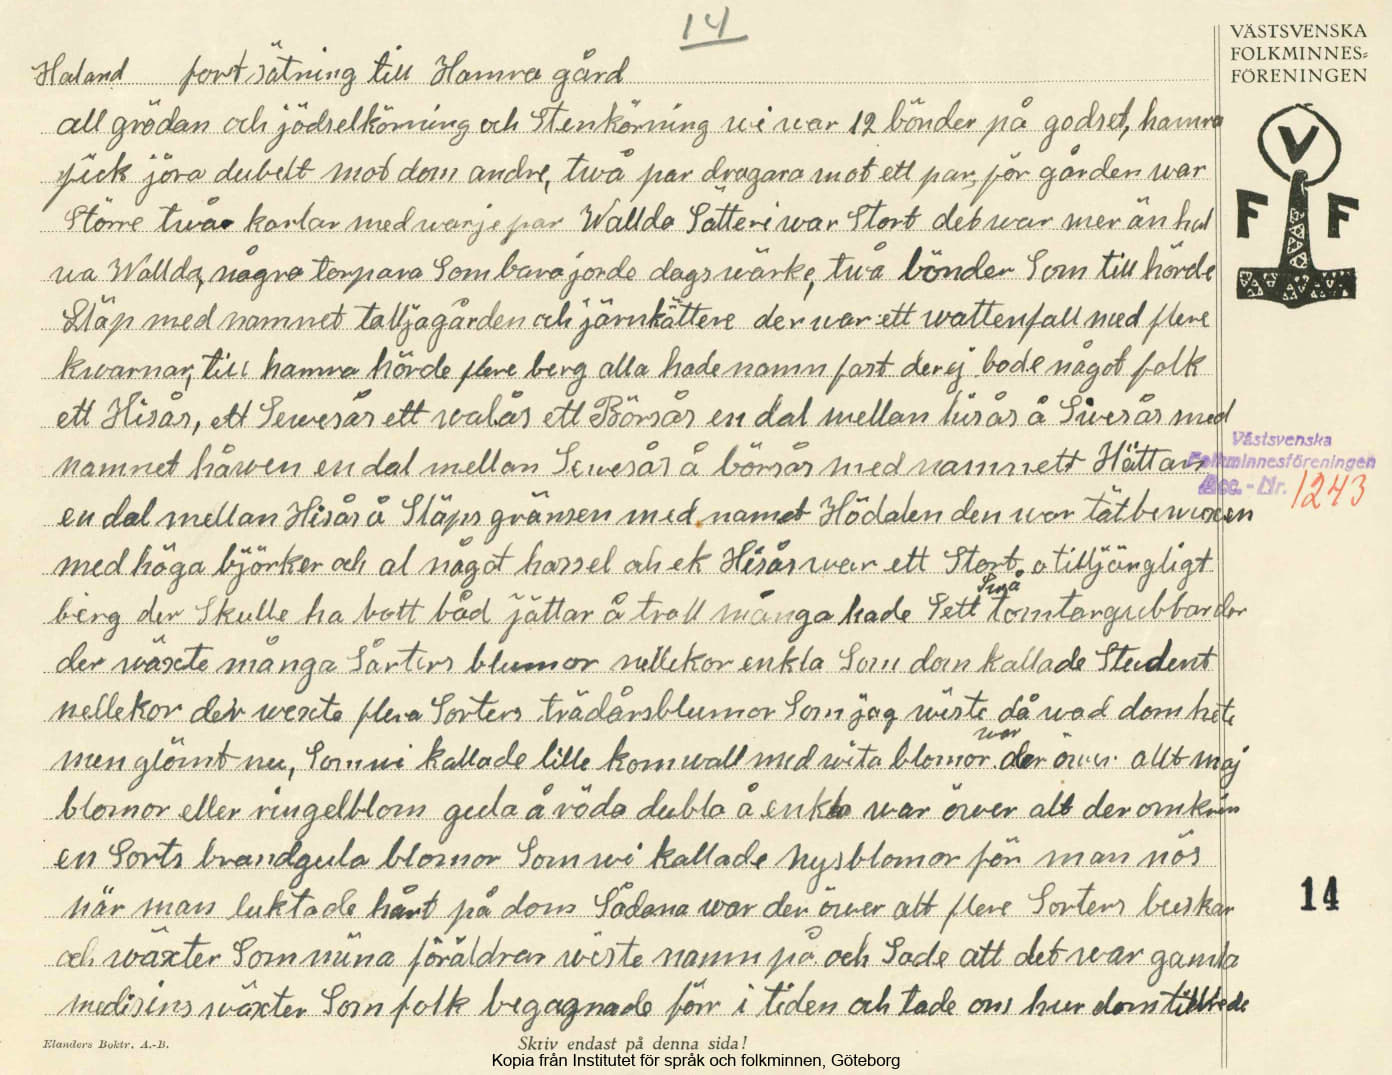 14
VÄSTSVENSKA
FOLKMINNES-
FÖRENINGEN
V
F F
Haland fortsätning till Hamra gård
all grödan och jödselkörning och Stenkörning wi war 12 bönder på godset, hamra
fick jöra dubelt mot dom andre, två par dragara mot ett par, för gården war
Större twåo karlar med warje par Wallda Sätteri war Stort det war mer än hal
va Wallda, några torpara Som bara jorde dagswärke, två bönder Som till hörde
Släp med namnet talljagården och järnkättere der war ett wattenfall med flere
kwarnar, till hamra hörde flere berg alla hade namn fast der ej bode något folk
ett Hisås, ett Sewesås ett walås ett Börsås en dal mellan hisås å Siwesås med
namnet håwen en dal mellan Sewesås å börsås med namnett Hättan
en dal mellan Hisås å Släps gränsen med namet Hödalen den war tätbewuxen
med höga björker och al något hassel och ek Hisås war ett Stort o tilljängligt
berg der Skulle ha bott båd jättar å troll många hade Sett Små tomtargubbar der
der wäxte många Sårters blumor nellekor enkla Som dom kallade Student
nellekor der wexte flera Sorters trädårsblumor Som jag wiste då wad dom hete
men glömt nu, Som wi kallade lille komwall med wita blomor war der öwer allt maj
blomor eller ringelblom gula å röda dubla å enkla war öwer alt der omkrin
en Sorts brandgula blomor Som wi kallade Nysblomor för man nös
när man luktade hårt på dom Sådana war der öwer alt flere Sorters buskar
och wäxter Som mina föräldrar wiste namn på och Sade att det war gamla
medisins wäxter Som folk begagnade förr i tiden och tade oms hur dom tillrede
Västsvenska
Folkminnesföreningen
Acc.-Nr. 1243
14
Elanders Boktr. A.-B.
Skriv endast på denna sida!
Kopia från Institutet för språk och folkminnen, Göteborg